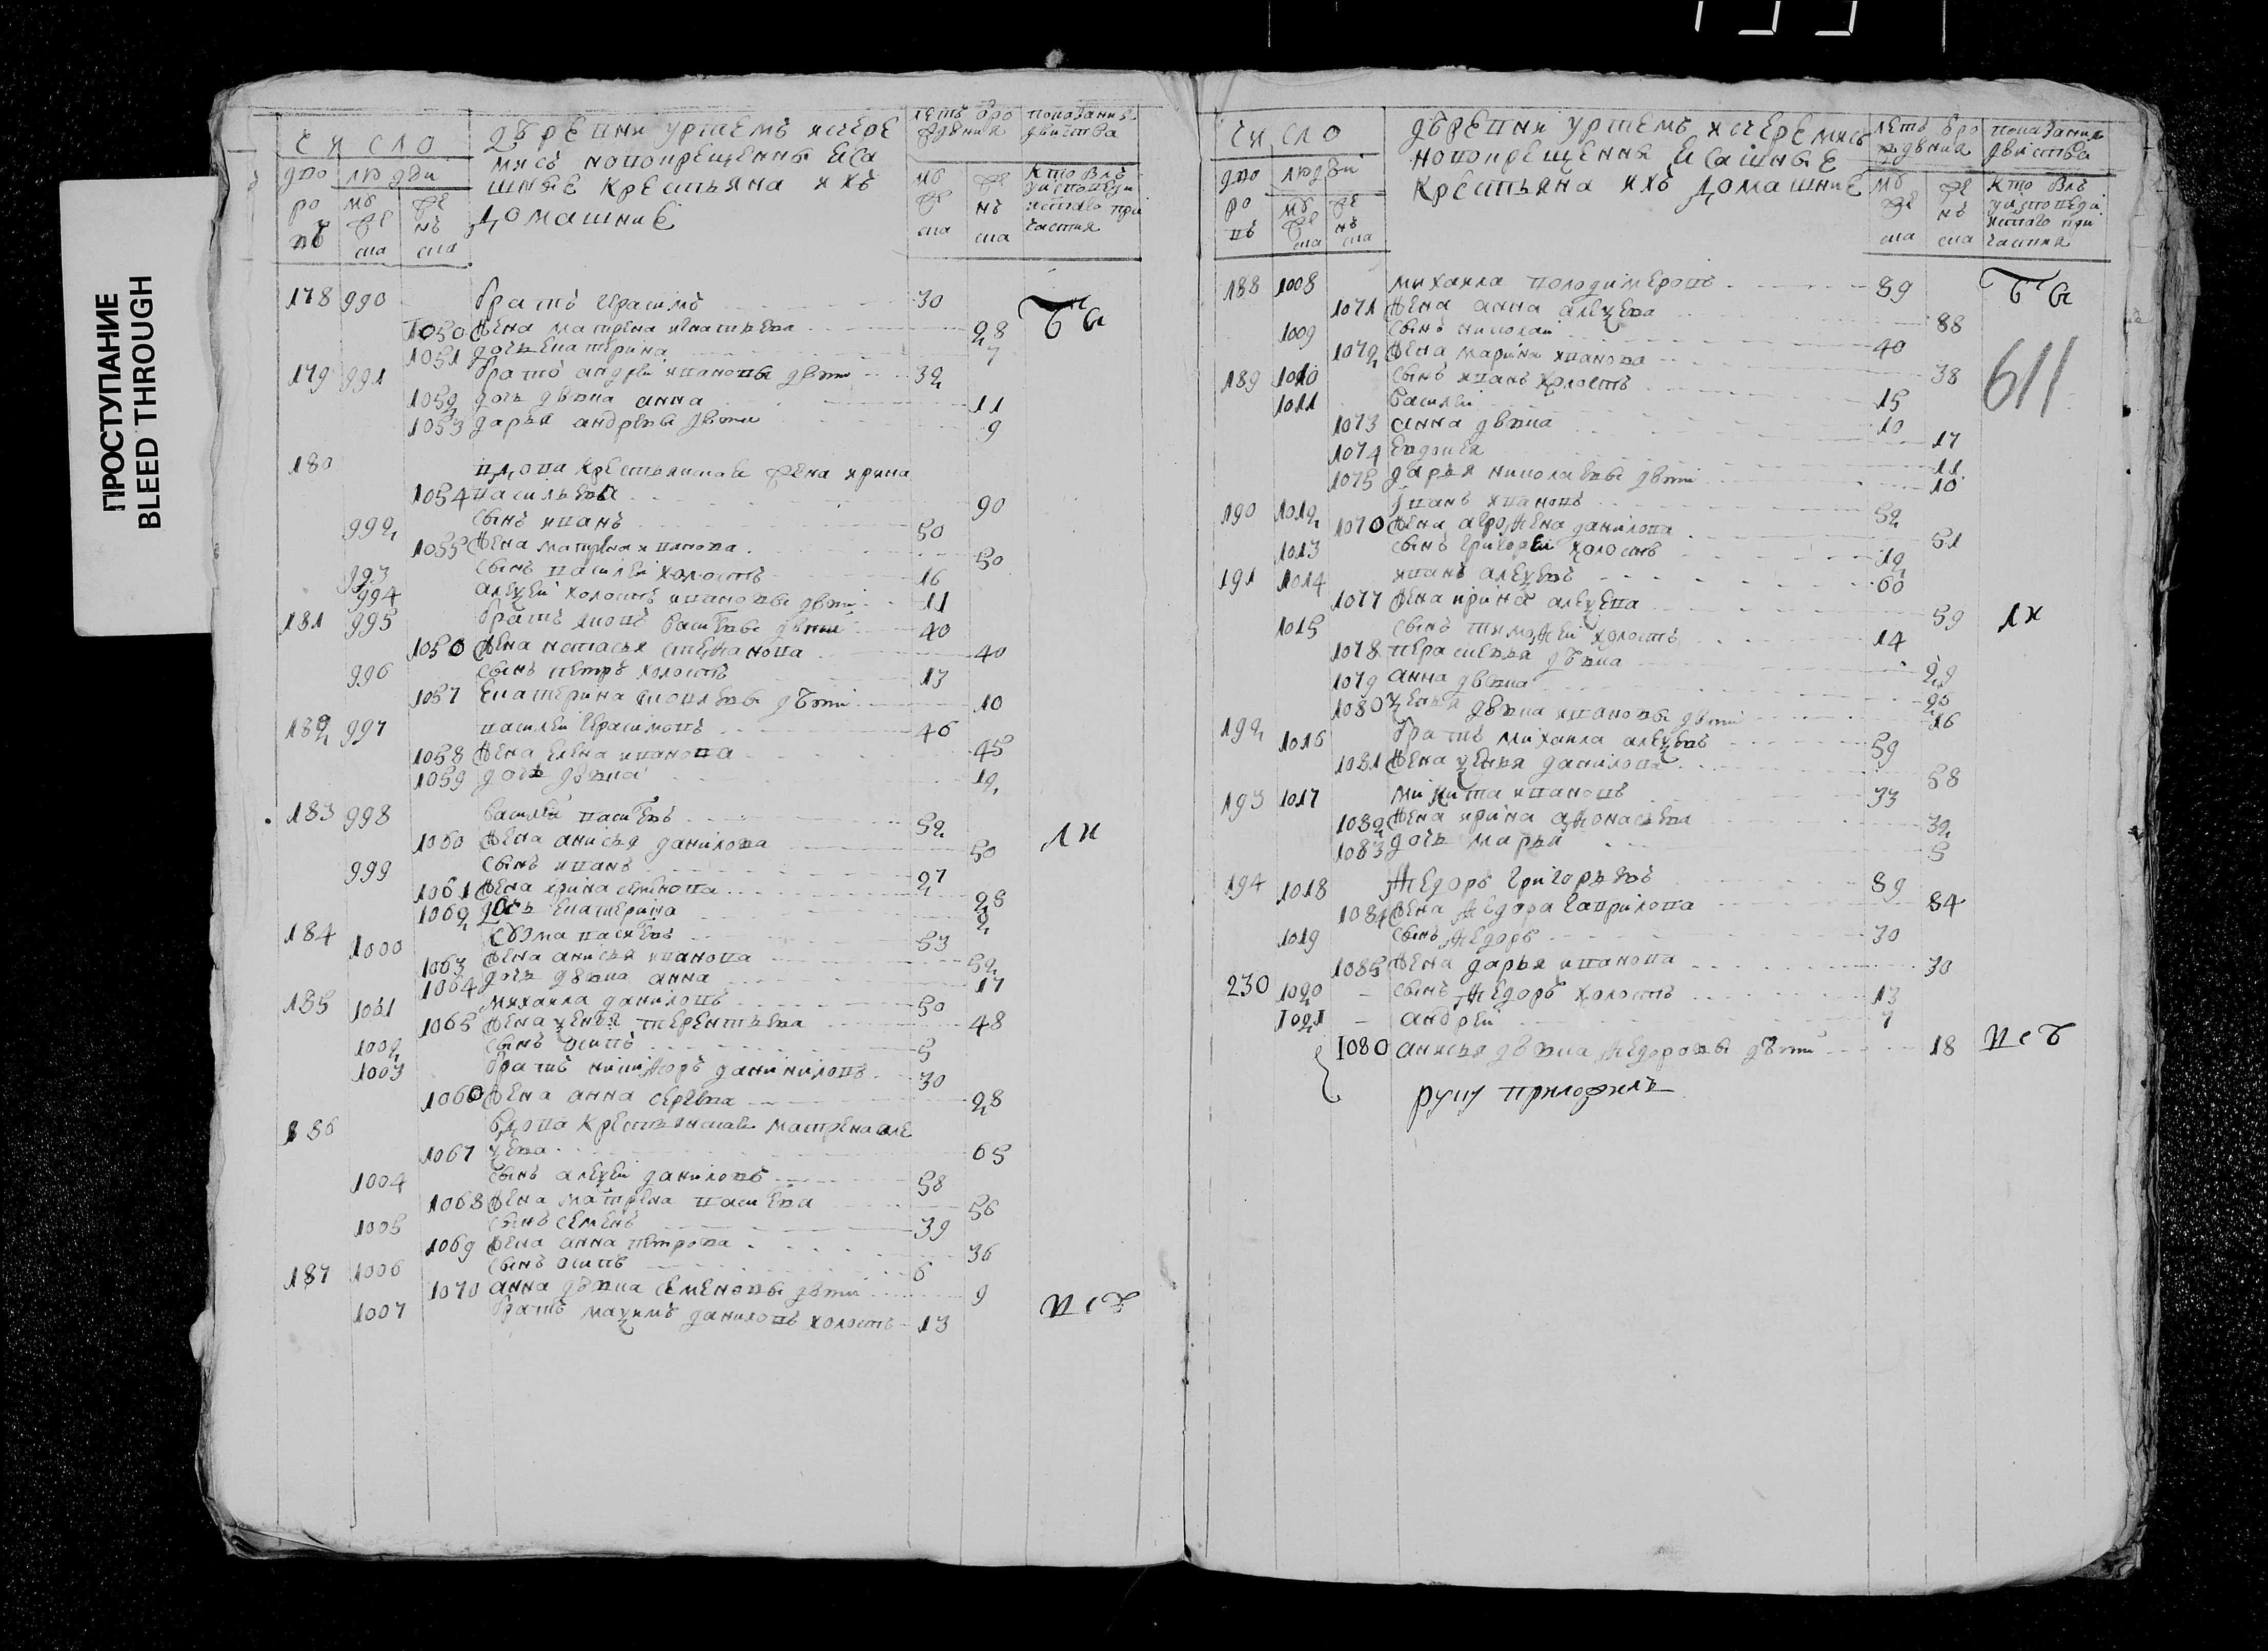 ПРОСТУПАНИЕ
BLEED THROUGH
число
дворовъ
людей
мужеска
женска
деревни уртемъ исчере
мисъ новокрещенны еса
шные крестьяна ихъ
домашние
летъ о рождения
мужеска
женска
показание действа
кто былъ у исповеди и стаго причастия
178 990 братъ герасимъ 30
1050 жена матрена игнатьева 28
1051 дочь екатерина 7
179 991 братъ андрей ивановы дети 32
1052 дочь девка анна 11
1053 дарья андревы дети 9
180 вдова крестьянская жена ирина
1054 васильева 90
992 сынъ иванъ 50
1055 жена матрена иванова 50
993 сынъ василей холостъ 16
994 алеѯей холостъ ивановы дети 11
181 995 братъ яковъ васильевы дети 40
1056 жена настасья стеѳанова 40
996 сынъ петръ холостъ 13
1057 екатерина яковлевы дети 10
182 997 василей герасимовъ 46
1058 жена елена иванова 45
1059 дочь девка 12
183 998 василей васильевъ 52
1060 жена анисья данилова 50
999 сынъ иванъ 27
1061 жена ирина семенова 28
1062 дочь екатерина 2
184 1000 козма васильевъ 53
1063 жена анисья иванова 52
1064 дочь девка анна 17
185 1001 михаила даниловъ 50
1065 жена ѯенья терентьева 48
1002 сынъ осипъ 5
1003 братъ никиѳоръ даниниловъ 30
1066 жена анна сергева 28
186 вдова крестьянская матрена але
1067 ѯева 65
1004 сынъ алеѯей даниловъ 58
1068 жена матрена васильева 56
1005 сынъ семенъ 39
1069 жена анна петрова 36
187 1006 сынъ осипъ 6
1070 анна девка семеновы дети 9
1007 братъ маѯимъ даниловъ холостъ 13
число
дворовъ
людей
мужеска
женска
деревни уртемъ исчеремисъ
новокрещенны есашные
крестьяна ихъ домашние
летъ о рождения
мужеска
женска
показания действа
кто былъ у исповеди и стаго причастия
188 1008 михаила володимеровъ 89
1071 жена анна алеѯева 88
1009 сынъ николай 40
1072 жена марина иванова 38
189 1010 сынъ иванъ холостъ 15
1011 василей 10
1073 анна девка 17
1074 евдокея 11
1075 дарья николаевы дети 10
190 1012 иванъ ивановъ 52
1076 жена аѳроѳена данилова 51
1013 сынъ григорей холостъ 12
191 1014 иванъ алеѯевъ 60
1077 жена ирина алеѯева 59
1015 сынъ тимоѳей холостъ 14
1078 парасковья девка 29
1079 анна девка 25
1080 ѯенья девка ивановы дети 16
192 1016 братъ михаила алеѯевъ 59
1081 жена ѯенья данилова 58
193 1017 микита ивановъ 33
1082 жена ирина аѳонасьева 32
1083 дочь марья 5
194 1018 ѳедоръ григорьевъ 89
1084 жена ѳедора гаврилова 84
1019 сынъ ѳедоръ 30
1085 жена дарья иванова 30
230 1020 сынъ ѳедоръ холостъ 13
1021 андрей 7
1086 анисья девка ѳедоровы дети 18
руку приложилъ
611